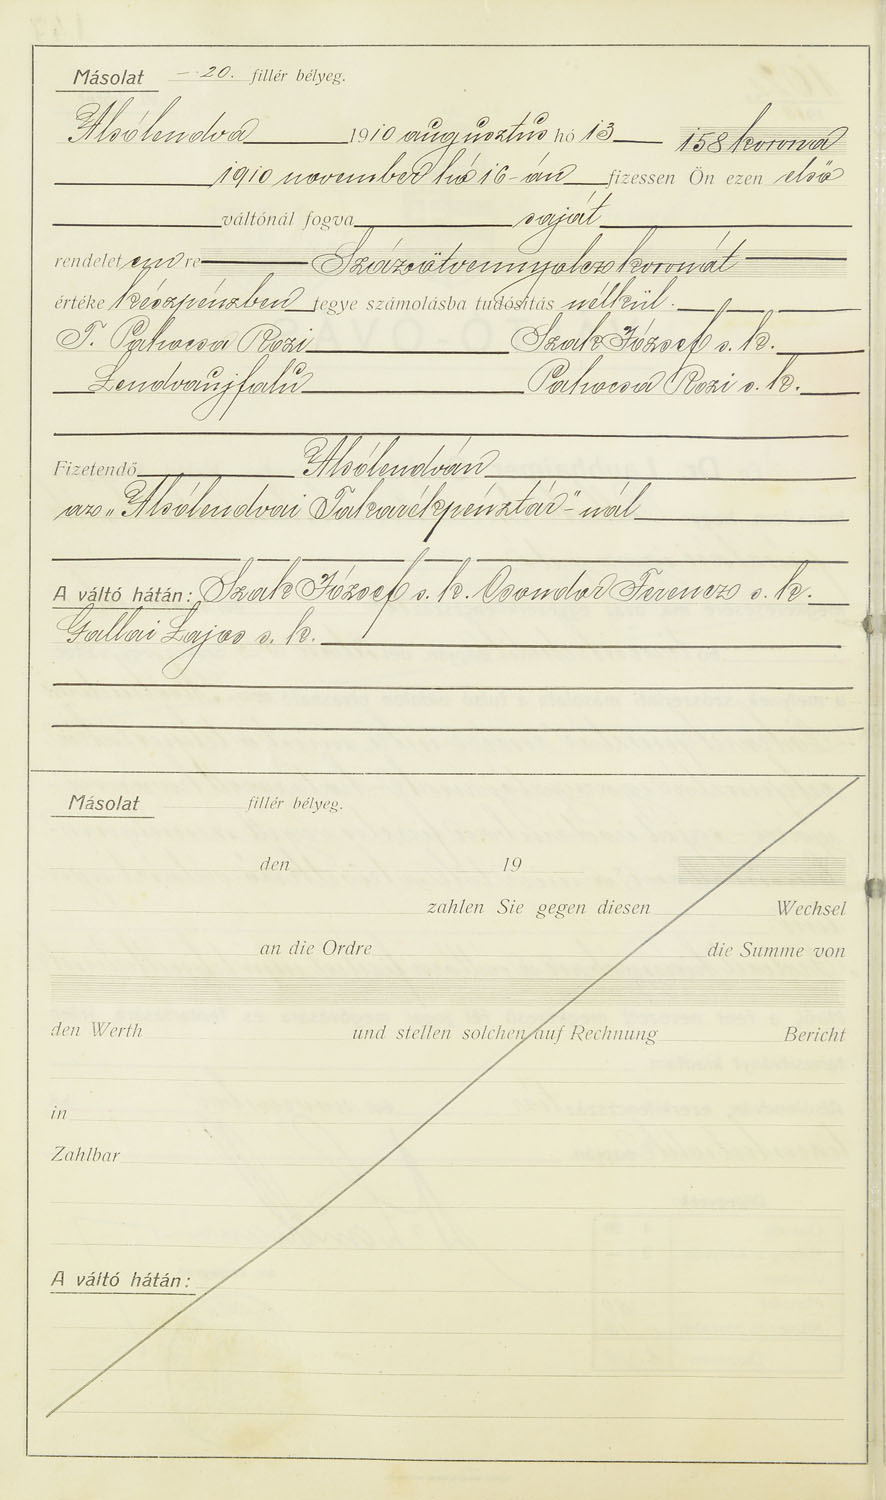 Másolat – 20. fillér bélyeg.
Alsólendva 1910 augusztus hó 13 158 korona
1910 november hó 16-án fizessen Ön ezen első
váltónál fogva saját
rendeletemre Százötvennyolcz koronát
értéke készpénzben tegye számolásba tudósítás nélkül.
T. Pahocsa Rozi Szak József s. k.
Lendvaujfalu Pahocsa Rozi s. k.
Fizetendő Alsólendván
az „Alsólendvai Takarékpénztár"-nál
A váltó hátán: Szak József s. k. Csondor Ferencz s. k.
Gallai Lajos s. k.
Másolat fillér bélyeg.
den 19
zahlen Sie gegen diesen Wechsel
an die Ordre die Summe von
den Werth und stellen solchen auf Rechnung Bericht
in
Zahlbar
A váltó hátán: